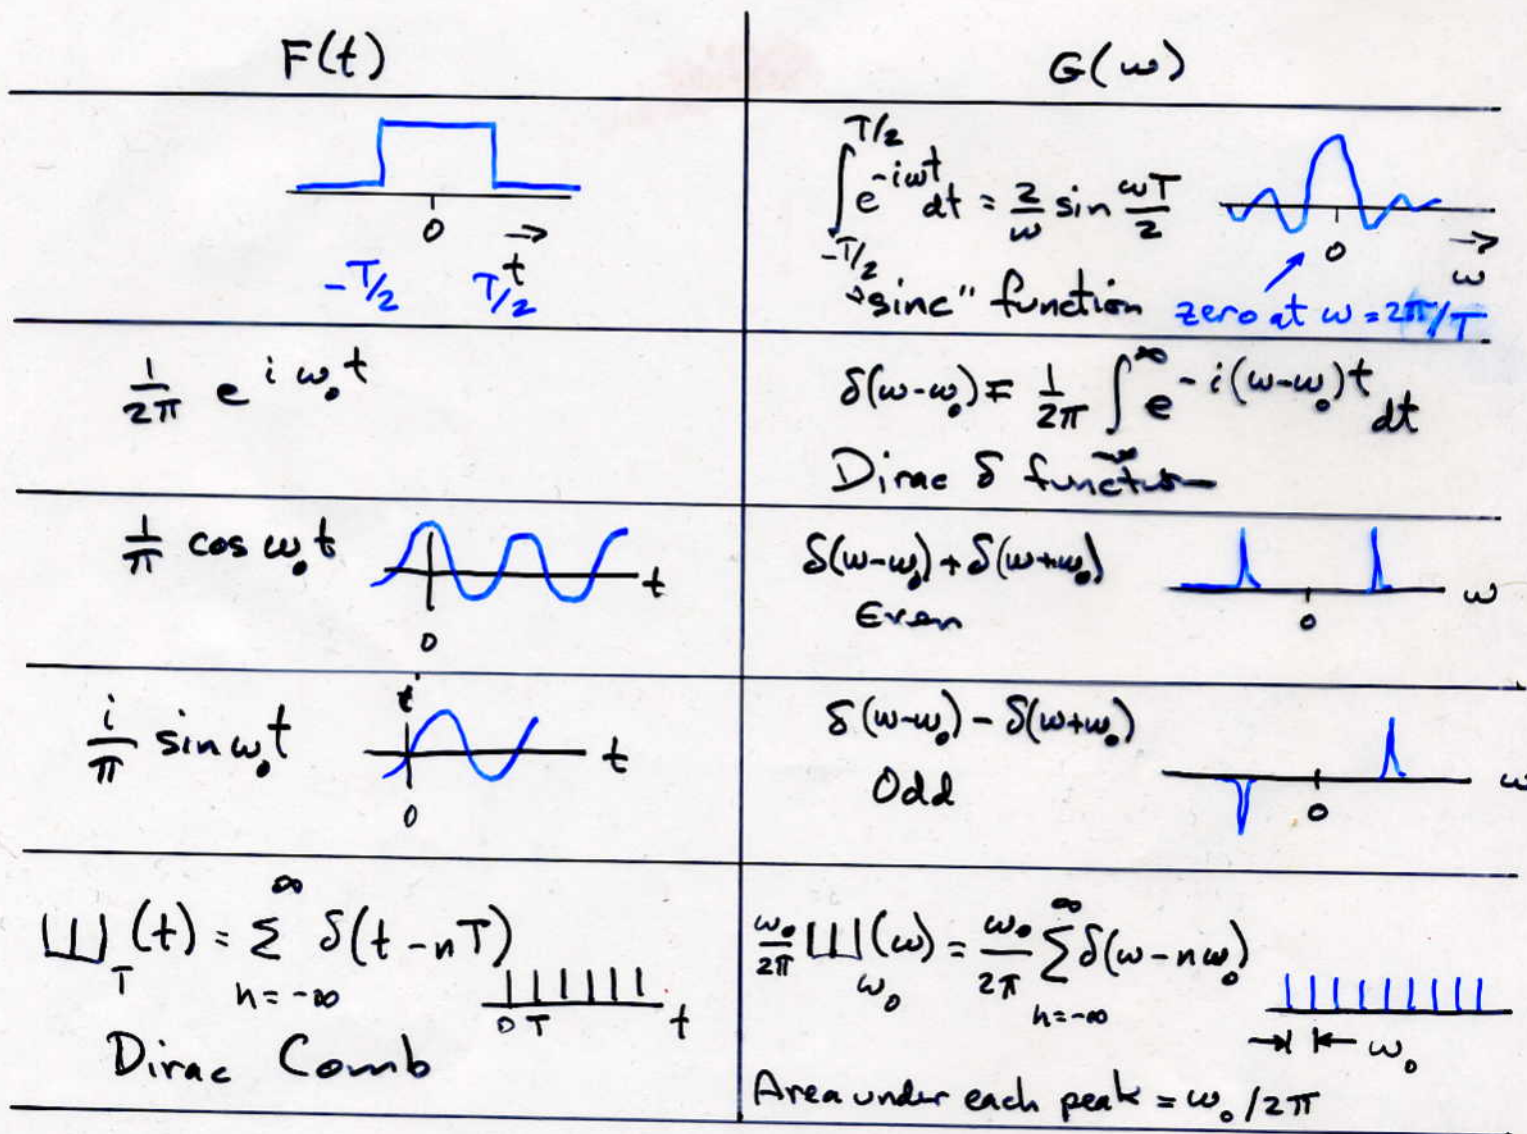 F(t)
G(ω)
0 → t
-T/2 T/2
∫_{-T/2}^{T/2} e^{-iωt} dt = 2/ω sin ωT/2
0 → ω
"sinc" function
zero at ω = 2π/T
1/2π e^{iω₀t}
δ(ω-ω₀) = 1/2π ∫_{-∞}^{∞} e^{-i(ω-ω₀)t} dt
Dirac δ function
1/π cos ω₀t
t
0
δ(ω-ω₀) + δ(ω+ω₀)
Even
ω
0
i/π sin ω₀t
t
0
δ(ω-ω₀) - δ(ω+ω₀)
Odd
ω
0
Ш_T(t) = Σ_{n=-∞}^{∞} δ(t-nT)
0 T t
Dirac Comb
ω₀/2π Ш_{ω₀}(ω) = ω₀/2π Σ_{n=-∞}^{∞} δ(ω-nω₀)
→ ← ω₀
Area under each peak = ω₀/2π